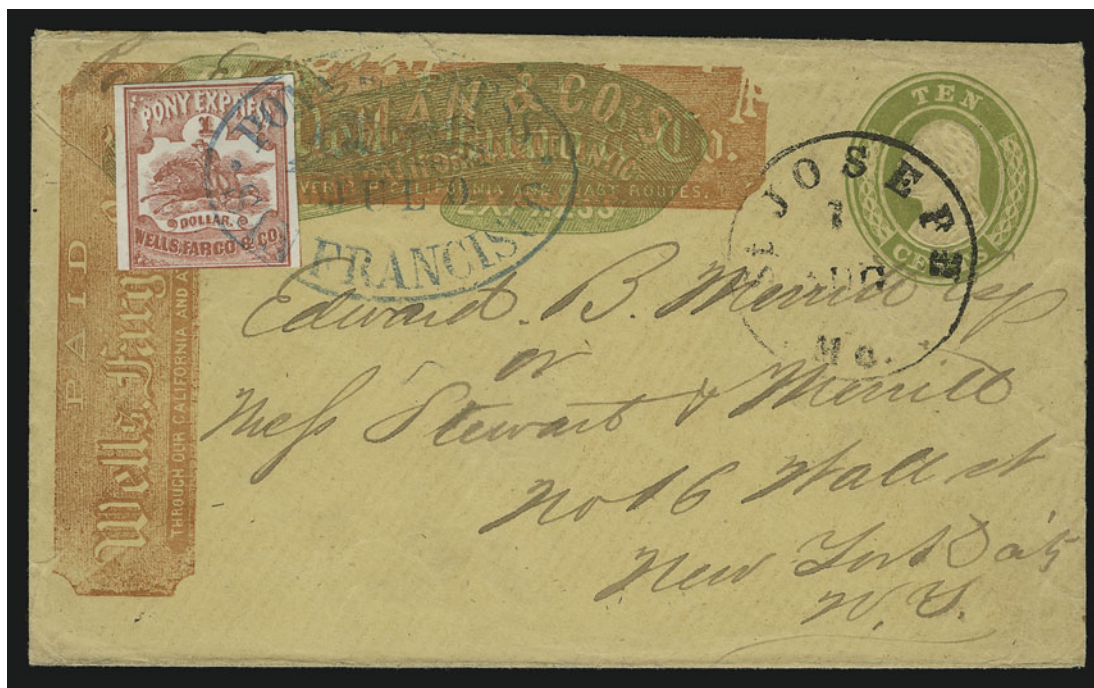 PONY EXPRESS
1
DOLLAR.
WELLS, FARGO & CO
PAID
Wells, Fargo
THROUGH OUR CALIFORNIA AND A
MAN & CO'S
Co.
CALIFORNIA
ATLANTIC
OVER OUR CALIFORNIA AND COAST ROUTES.
EXPRESS
PONY
FRANCISCO
TEN
CENTS
ST JOSEPH
1
AUG
Mo.
Edward. B. Merrill Esq
or
Mess Stewart & Merrill
No 16 Wall st
New York City
N.Y.